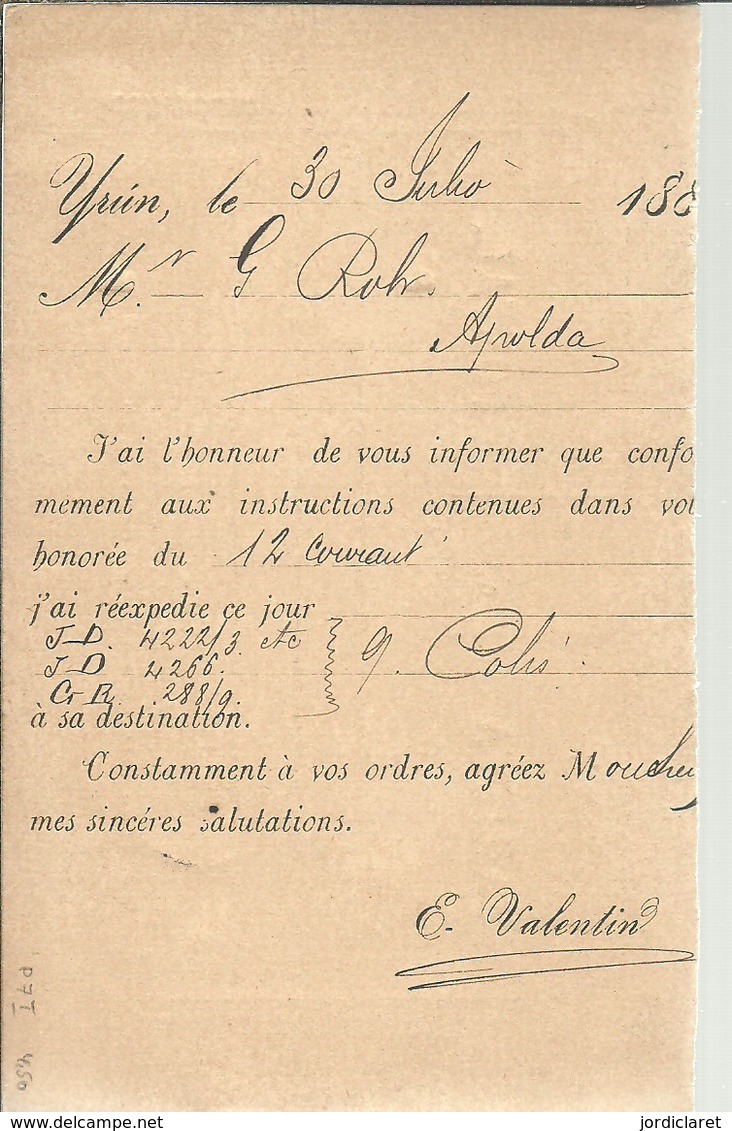 Yrún, le 30 Julio 188
Mr. G Rohr.
Apolda
J'ai l'honneur de vous informer que confo
mement aux instructions contenues dans vot
honorée du 12 courant
j'ai réexpedie ce jour
J-D. 4222/3. etc
J-D 4266.
G R. 288/9.
9. Colis.
à sa destination.
Constamment à vos ordres, agréez M
mes sincéres salutations.
E. Valentin
P7I
4,50
jordiclaret